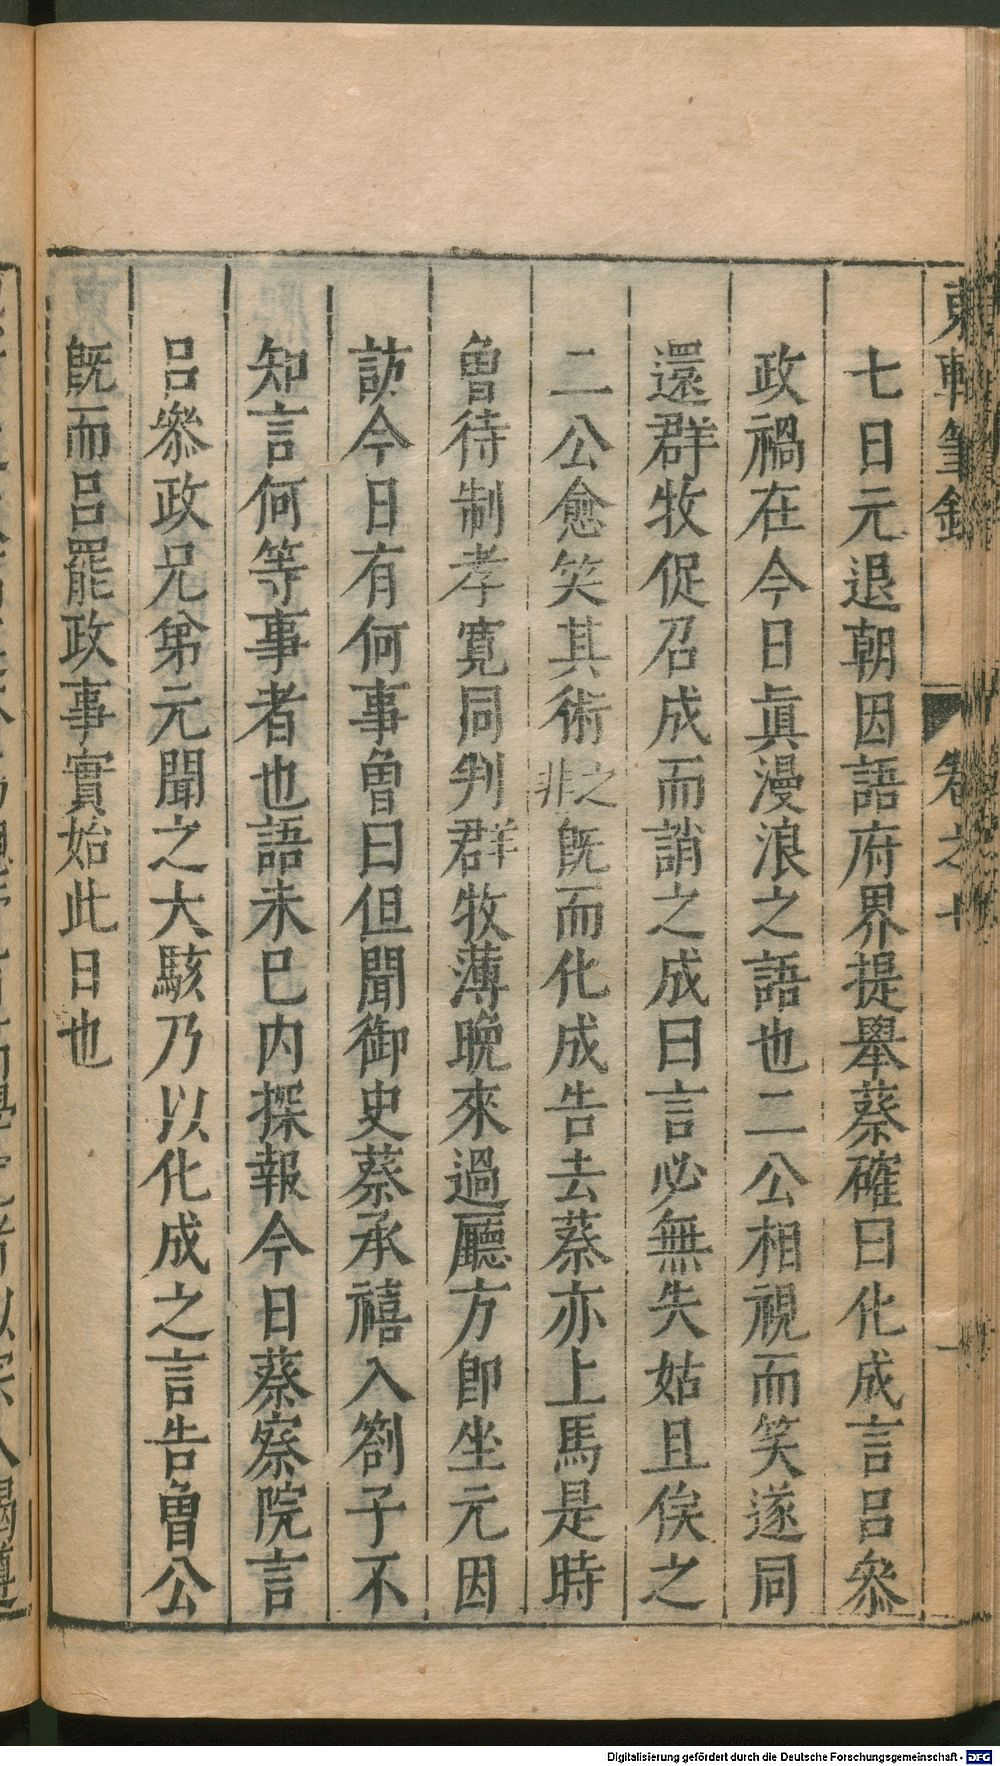 東軒筆錄 卷之十 一
七日元退朝因語府界提舉蔡確曰化成言呂叅
政禍在今日眞漫浪之語也二公相視而笑遂同
還群牧促召成而誚之成曰言必無失姑且俟之
二公愈笑其術之非旣而化成告去蔡亦上馬是時
曾待制孝寬同判群牧薄晚來過廳方卽坐元因
訪今日有何事曾曰但聞御史蔡承禧入劄子不
知言何等事者也語未巳内探報今日蔡察院言
呂叅政兄弟元聞之大駭乃以化成之言告曾公
旣而呂罷政事實始此日也
Digitalisierung gefördert durch die Deutsche Forschungsgemeinschaft - DFG